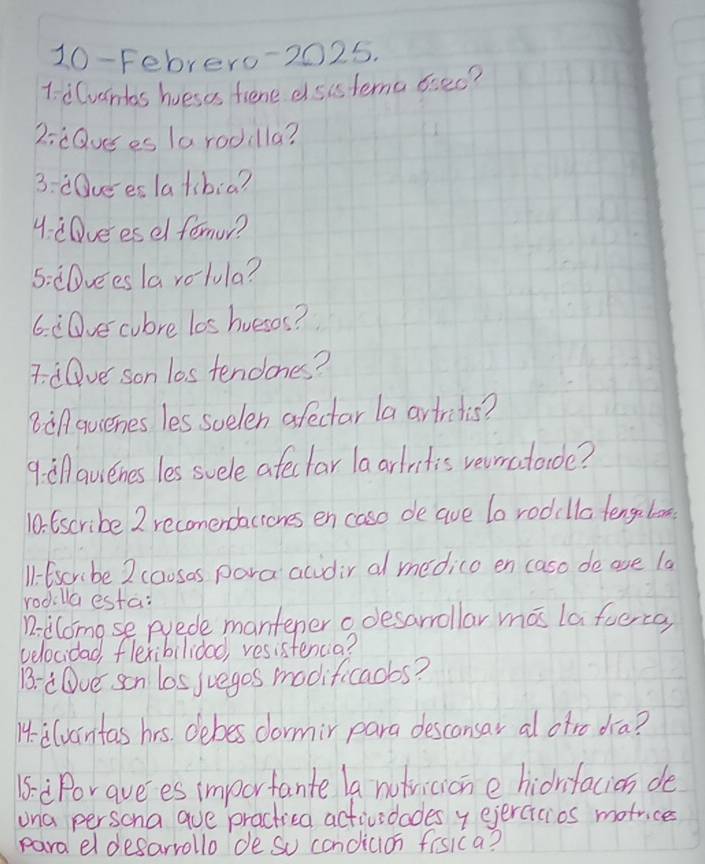 10-Febrero-2025.
1-¿Cuántos huesos tiene el sistema óseo?
2-¿Qué es la rodilla?
3-¿Qué es la tibia?
4-¿Qué es el fémur?
5-¿Qué es la rotula?
6-¿Qué cubre los huesos?
7-¿Qué son los tendones?
8-¿A quienes les suelen afectar la artritis?
9-¿A quiénes les suele afectar la artritis reumatoide?
10-Escribe 2 recomendaciones en caso de que la rodilla tenga
11-Escribe 2 causas para acudir al medico en caso de que la
rodilla esta:
12-¿Cómo se puede mantener o desarrollar más la fuerza,
velocidad, flexibilidad, resistencia?
13-¿Qué son los juegos modificados?
14-¿Cuántas hrs. debes dormir para descansar al otro día?
15-¿Por qué es importante la nutrición e hidratación de
una persona que practica actividades y ejercicios motrices
para el desarrollo de su condición física?